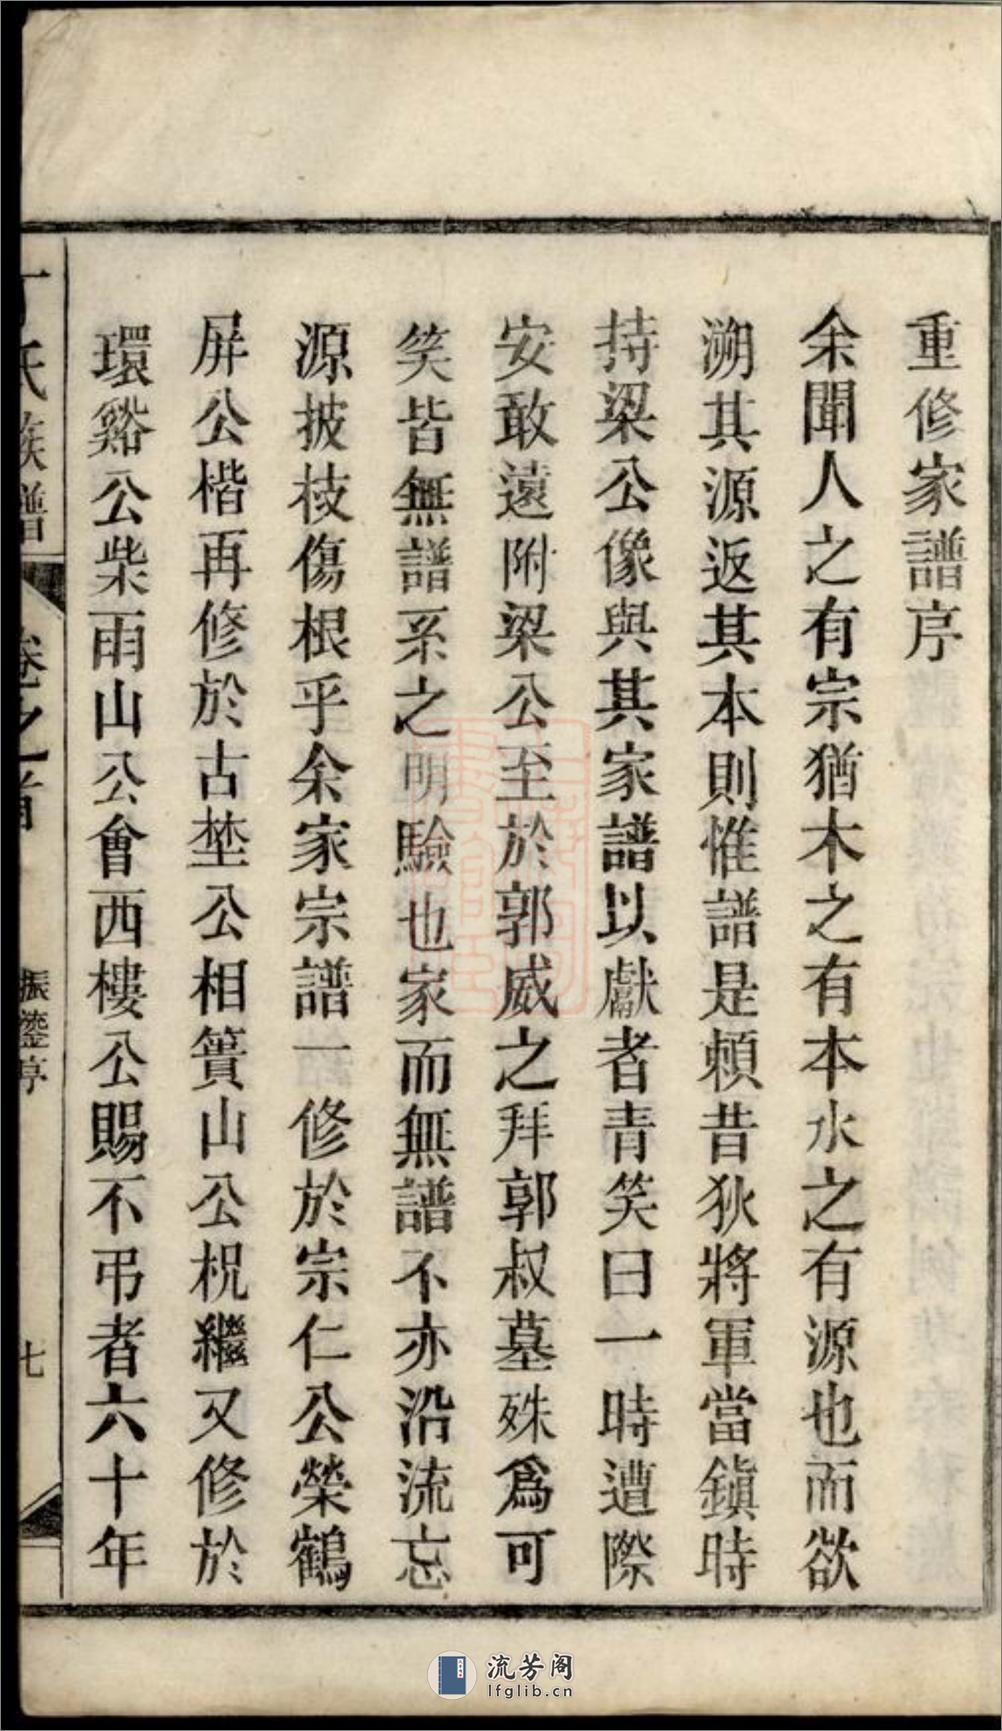 重修家譜序
余聞人之有宗猶木之有本水之有源也而欲
溯其源返其本則惟譜是賴昔狄將軍當鎮時
持梁公像與其家譜以獻者青笑曰一時遭際
安敢遠附梁公至於郭威之拜郭叔墓殊為可
笑皆無譜系之明驗也家而無譜不亦沿流忘
源披枝傷根乎余家宗譜一修於宗仁公榮鶴
屏公楷再修於古埜公相簣山公柷繼又修於
環谿公柴雨山公會西樓公賜不弔者六十年
氏族譜
卷之首
振鎣序
七
流芳阁
lfglib.cn